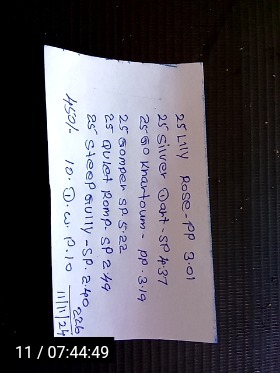 25 Lily Rose - PP 3.01
25 Silver Dart - SP 4.37
25 Go Khartoum - PP. 3.19
25 Gomper SP 5.22
25 Quiet Romp. SP 2.49
25 Steep Gully - SP. 2.40
450/- 10. D. W. P. 10 226
11/11/24
11 / 07:44:49